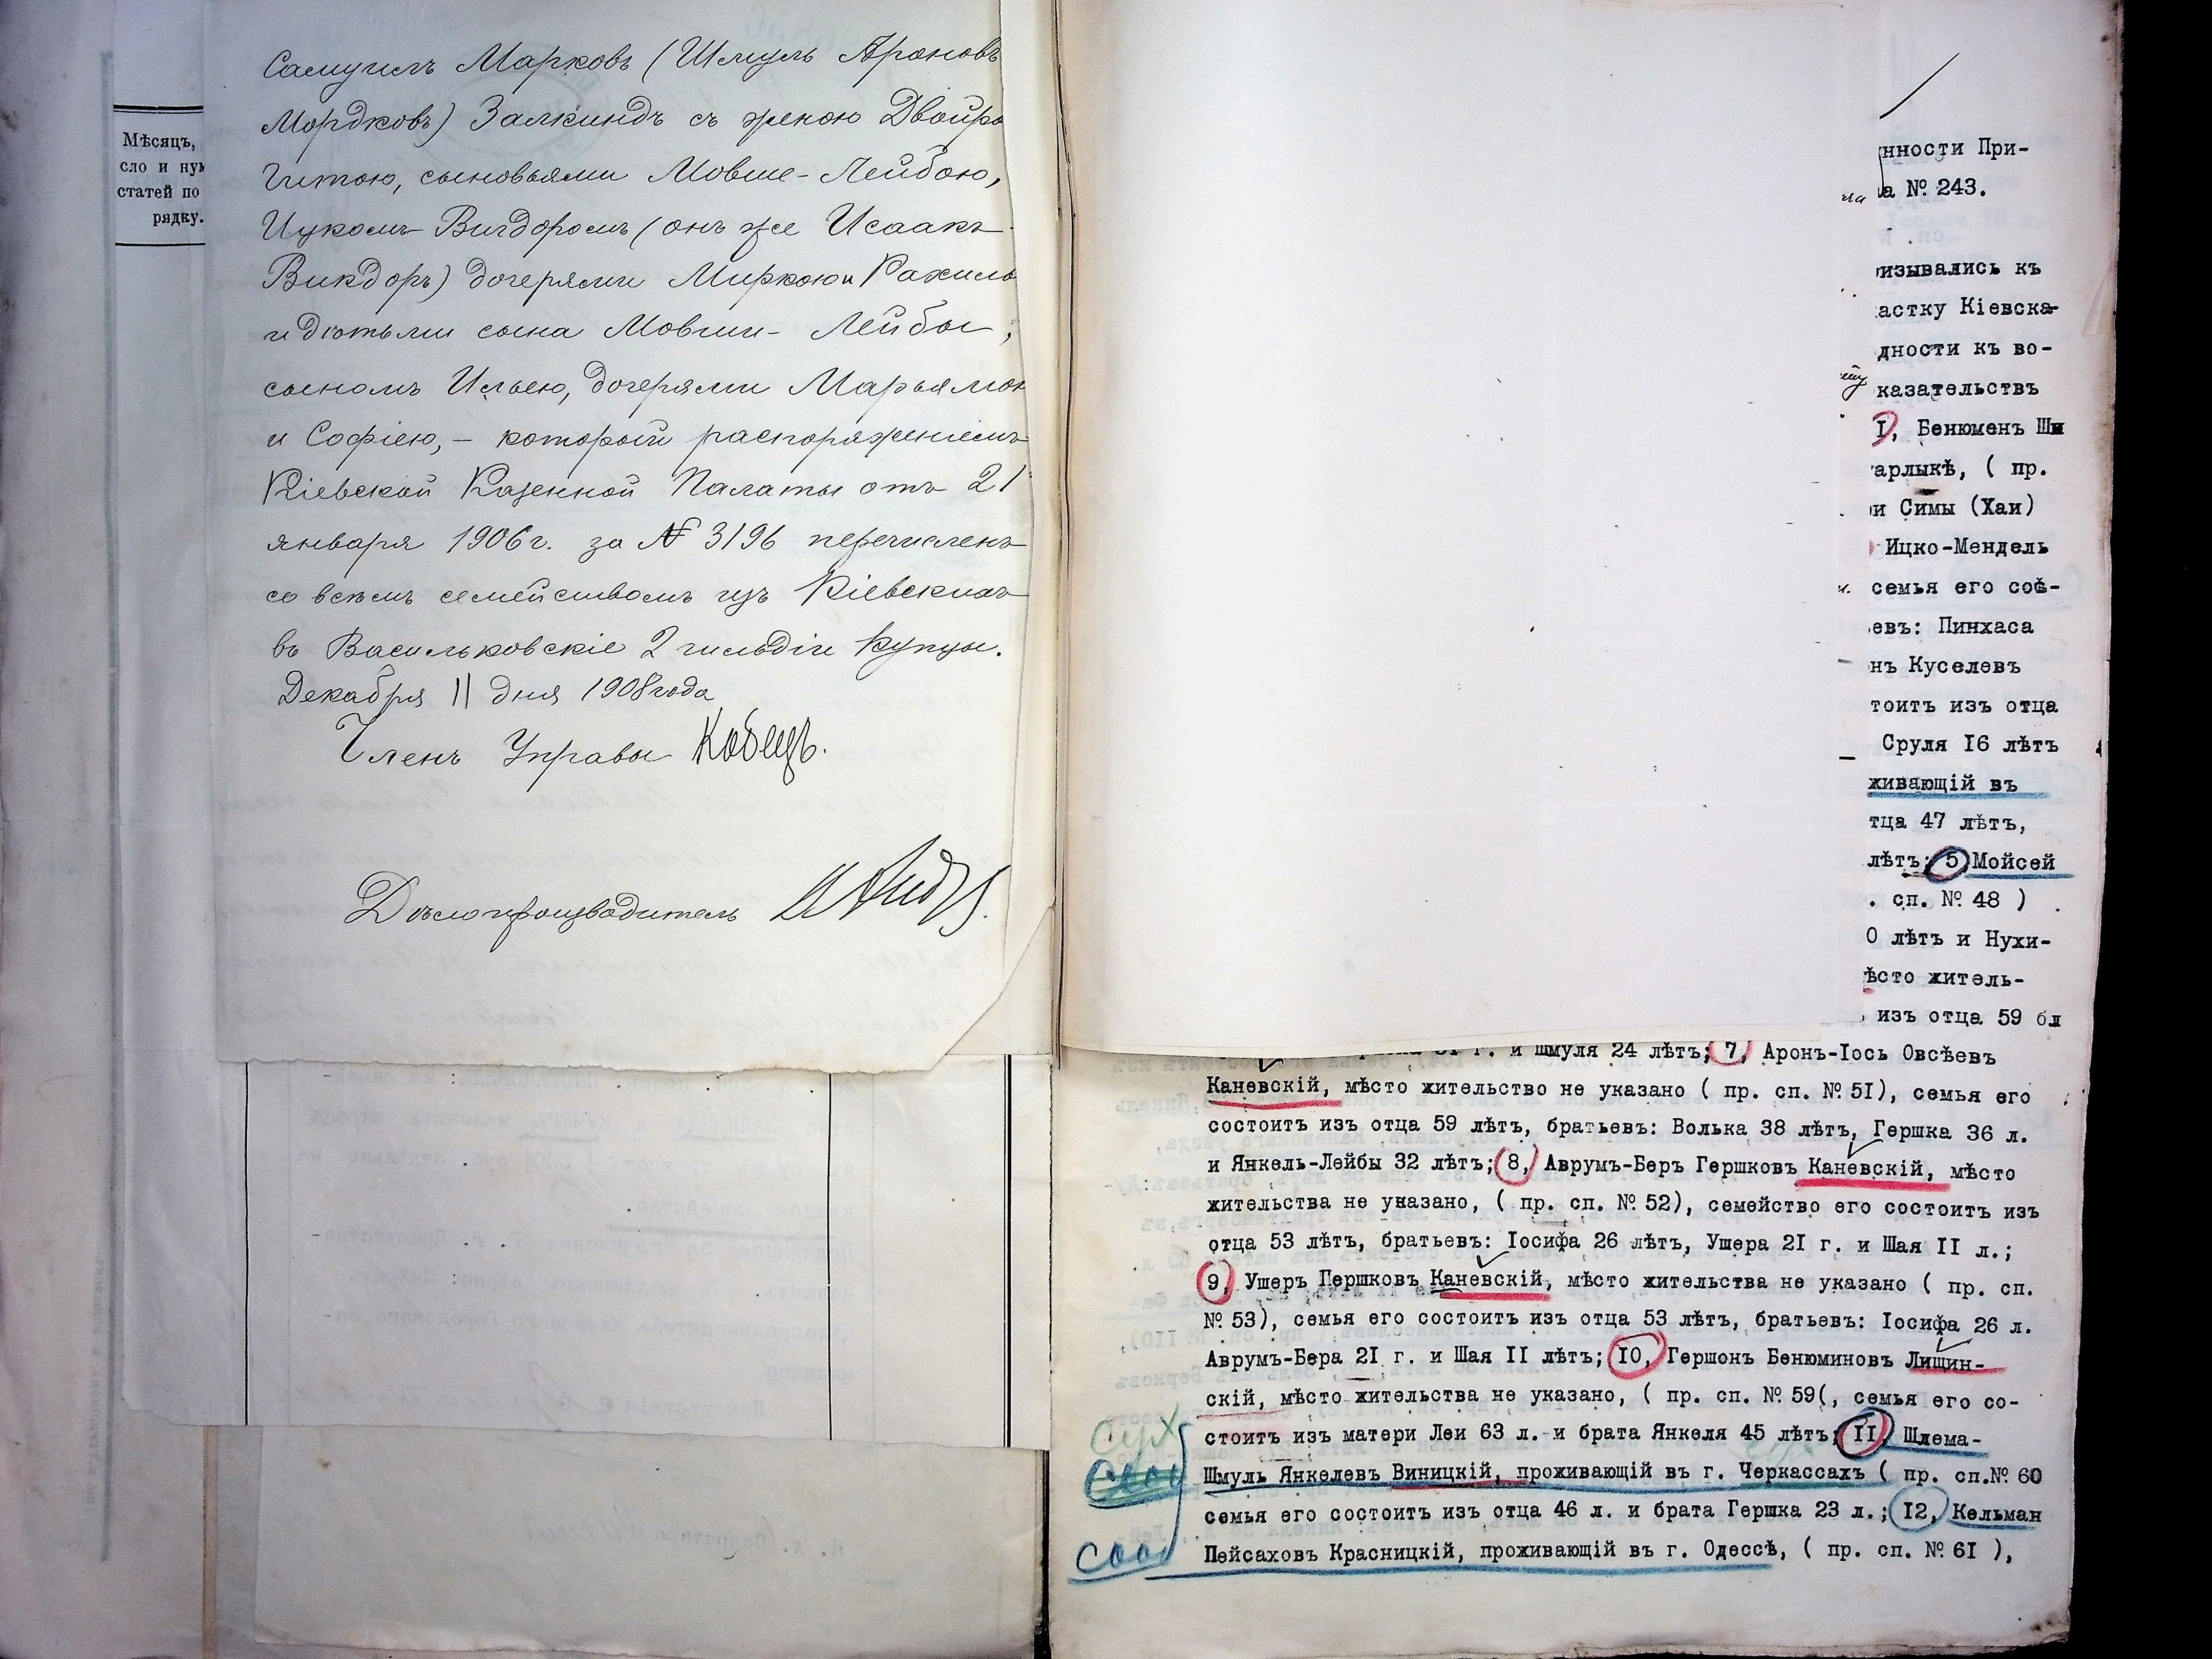 Мѣсяцъ,
сло и нум
статей по
рядку.
Самуилъ Марковъ (Шмуль Ароновъ
Мордковъ) Залкиндъ съ женою Двойро
Гитою, сыновьями Мовше-Лейбою,
Ицкомъ-Вигдоромъ (онъ же Исаакъ
Викдоръ) дочерями Миркою и Рахиль
и дѣтьми сына Мовши-Лейбы,
сыномъ Ильею, дочерями Марьямою
и Софіею, – который распоряженіемъ
Кіевской Казенной Палаты отъ 21
января 1906 г. за № 3196 перечисленъ
со всѣмъ семействомъ изъ Кіевскихъ
въ Васильковскіе 2 гильдіи купцы.
Декабря 11 дня 1908 года
Членъ Управы Кобецъ.
Дѣлопроизводитель
нности При-
а № 243.
изывались къ
астку Кіевска-
дности къ во-
казательствъ
I, Бенюменъ Ши
арлыкѣ, ( пр.
и Симы (Хаи)
Ицко-Мендель
семья его соѣ-
евъ: Пинхаса
нъ Куселевъ
тоитъ изъ отца
Сруля I6 лѣтъ
живающій въ
тца 47 лѣтъ,
лѣтъ; 5, Мойсей
. сп. № 48 )
0 лѣтъ и Нухи-
ѣсто житель-
изъ отца 59 бл
г. и Шмуля 24 лѣтъ; 7, Аронъ-Іось Овсѣевъ
Каневскій, мѣсто жительство не указано ( пр. сп. № 5I), семья его
состоитъ изъ отца 59 лѣтъ, братьевъ: Волька 38 лѣтъ, Гершка 36 л.
и Янкель-Лейбы 32 лѣтъ; 8, Аврумъ-Беръ Гершковъ Каневскій, мѣсто
жительства не указано, ( пр. сп. № 52), семейство его состоитъ изъ
отца 53 лѣтъ, братьевъ: Іосифа 26 лѣтъ, Ушера 2I г. и Шая II л.;
9, Ушеръ Гершковъ Каневскій, мѣсто жительства не указано ( пр. сп.
№ 53), семья его состоитъ изъ отца 53 лѣтъ, братьевъ: Іосифа 26 л.
Аврумъ-Бера 2I г. и Шая II лѣтъ; I0, Гершонъ Бенюминовъ Лищин-
скій, мѣсто жительства не указано, ( пр. сп. № 59(, семья его со-
стоитъ изъ матери Леи 63 л. и брата Янкеля 45 лѣтъ; II, Шлема-
Шмуль Янкелевъ Виницкій, проживающій въ г. Черкассахъ ( пр. сп.№ 60
семья его состоитъ изъ отца 46 л. и брата Гершка 23 л.; I2, Кельман
Пейсаховъ Красницкій, проживающій въ г. Одессѣ, ( пр. сп. № 6I ),